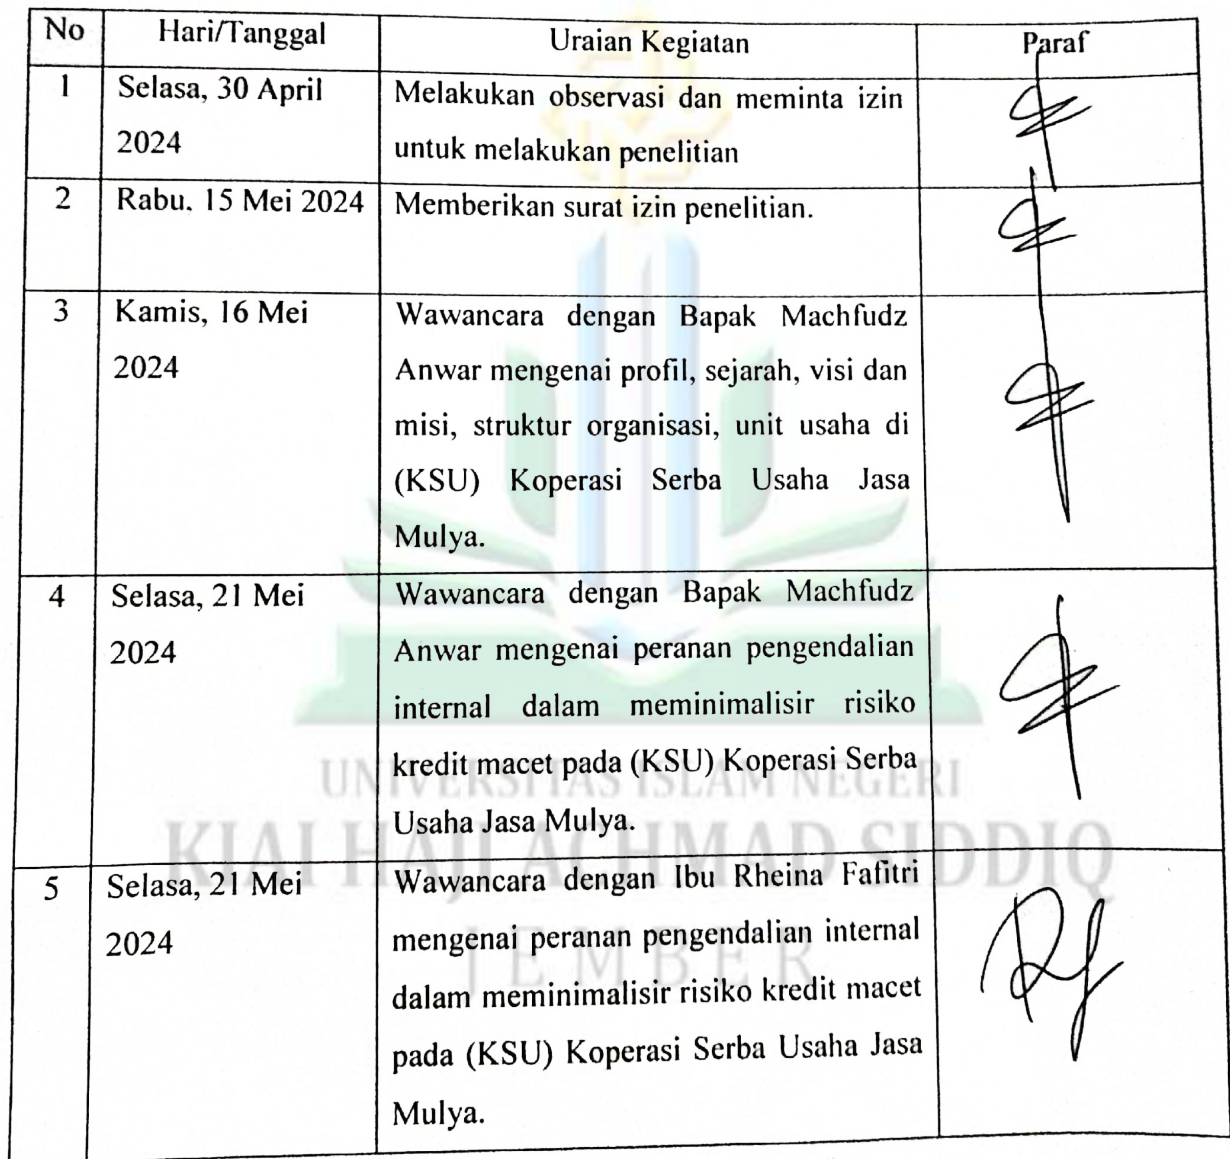 No Hari/Tanggal Uraian Kegiatan Paraf
1 Selasa, 30 April Melakukan observasi dan meminta izin
2024 untuk melakukan penelitian
2 Rabu. 15 Mei 2024 Memberikan surat izin penelitian.
3 Kamis, 16 Mei Wawancara dengan Bapak Machfudz
2024 Anwar mengenai profil, sejarah, visi dan
misi, struktur organisasi, unit usaha di
(KSU) Koperasi Serba Usaha Jasa
Mulya.
4 Selasa, 21 Mei Wawancara dengan Bapak Machfudz
2024 Anwar mengenai peranan pengendalian
internal dalam meminimalisir risiko
kredit macet pada (KSU) Koperasi Serba
Usaha Jasa Mulya.
5 Selasa, 21 Mei Wawancara dengan Ibu Rheina Fafitri
2024 mengenai peranan pengendalian internal
dalam meminimalisir risiko kredit macet
pada (KSU) Koperasi Serba Usaha Jasa
Mulya.
UNIVERSITAS ISLAM NEGERI
KIAI HAJI ACHMAD SIDDIQ
JEMBER